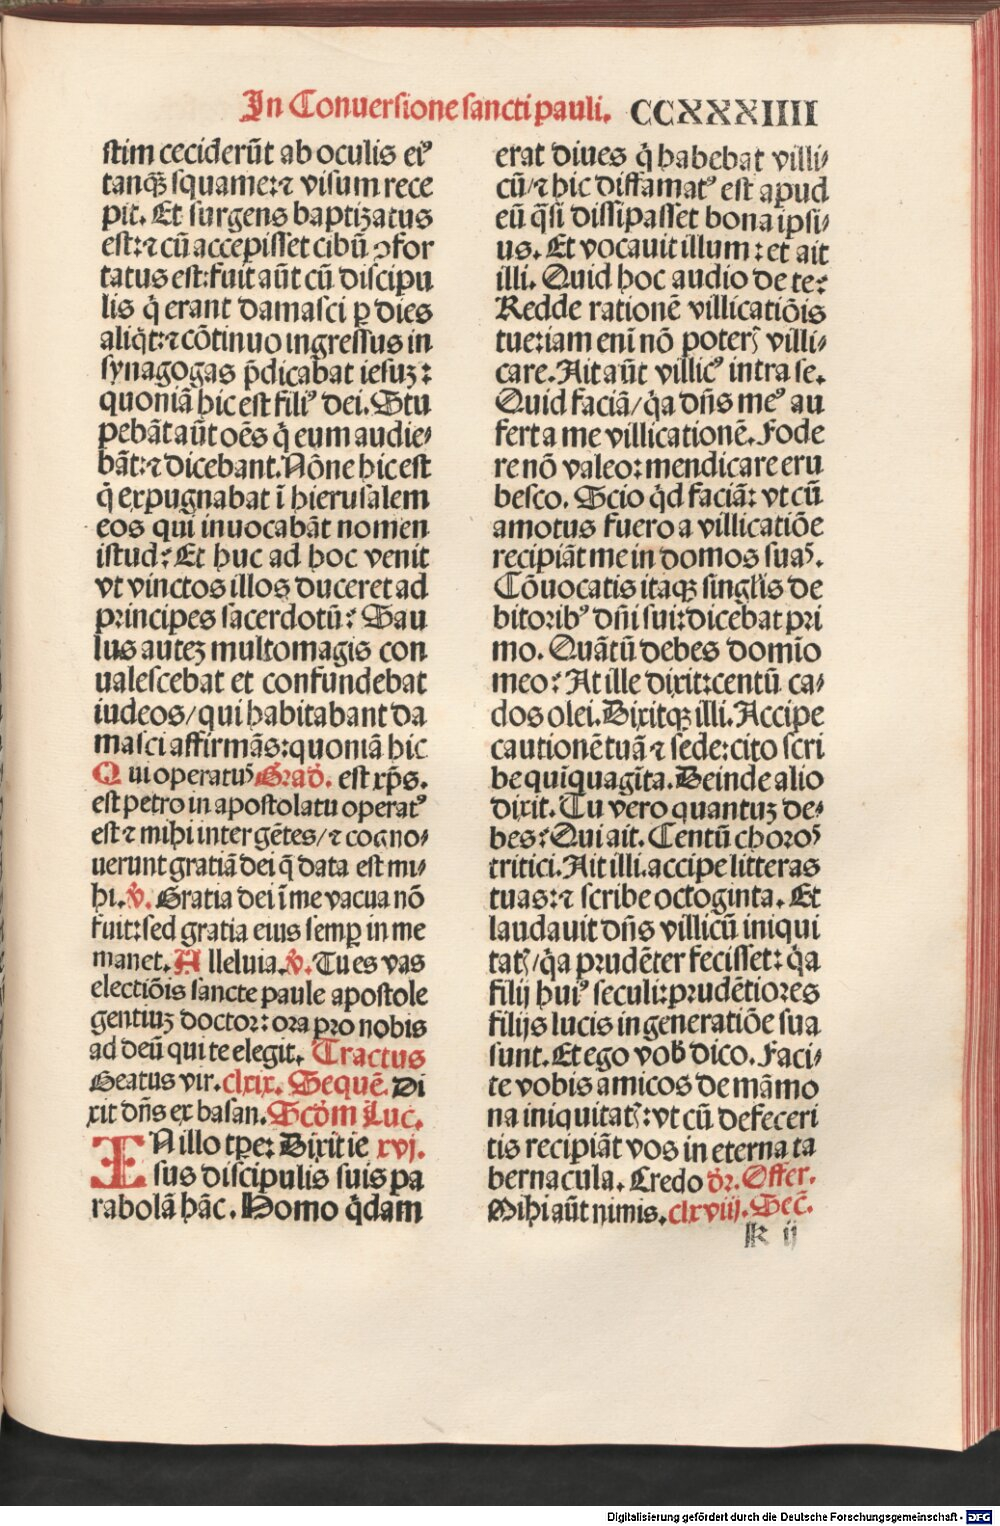 In Conuersione sancti pauli. CCXXXIIII
stim ceciderūt ab oculis eiꝰ
tanqꝫ squame: ⁊ visum rece
pit. Et surgens baptizatus
est: ⁊ cū accepisset cibū ꝯfor
tatus est: fuit aūt cū discipu
lis q̇ erant damasci ꝑ dies
aliq̇t: ⁊ cōtinuo ingressus in
synagogas p̄dicabat iesuꝫ:
quoniā hic est filiꝰ dei. Stu
pebāt aūt oēs q̇ eum audie⸗
bāt: ⁊ dicebant. Nōne hic est
q̇ expugnabat ī hierusalem
eos qui inuocabāt nomen
istud: Et huc ad hoc venit
vt vinctos illos duceret ad
principes sacerdotū: Sau
lus auteꝫ multomagis con
ualescebat et confundebat
iudeos/ qui habitabant da
masci affirmās: quoniā hic
Qui operatuꝰ Grad̄. est xp̄s.
est petro in apostolatu operatꝰ
est ⁊ mihi inter gētes/ ⁊ cogno⸗
uerunt gratiā dei q̄ data est mi⸗
hi. ℣. Gratia dei ī me vacua nō
fuit: sed gratia eius semꝑ in me
manet. Alleluia. ℣. Tu es vas
electiōis sancte paule apostole
gentiuꝫ doctor: ora pro nobis
ad deū qui te elegit. Tractus
Beatus vir. clxix. Sequē. Di
xit dn̄s ex basan. Scd̄m Luc.
IN illo tp̄e: Dixit ie xvj.
sus discipulis suis pa
rabolā hāc. Homo q̇dam
erat diues q̇ habebat villi⸗
cū/ ⁊ hic diffamatꝰ est apud
eū q̄si dissipasset bona ipsi⸗
us. Et vocauit illum: et ait
illi. Quid hoc audio de te:
Redde rationē villicatiōis
tue: iam eni̅ nō poterꝭ villi⸗
care. Ait aūt villicꝰ intra se.
Quid faciā/ q̇a dn̄s meꝰ au
fert a me villicationē. Fode
re nō valeo: mendicare eru
besco. Scio q̇d faciā: vt cū
amotus fuero a villicatiōe
recipiāt me in domos suaꝰ.
Cōuocatis itaqꝫ singl̄is de
bitoribꝰ dn̄i sui: dicebat pri
mo. Quātū debes domīo
meo: At ille dixit: centū ca⸗
dos olei. Dixitqꝫ illi. Accipe
cautionē tuā ⁊ sede: cito scri
be quīquagīta. Deinde alio
dixit. Tu vero quantuꝫ de⸗
bes: Qui ait. Centū choroꝰ
tritici. Ait illi. accipe litteras
tuas: ⁊ scribe octoginta. Et
laudauit dn̄s villicū iniqui
tatꝭ/ q̇a prudēter fecisset: q̇a
filij huiꝰ seculi: prudētiores
filijs lucis in generatiōe sua
sunt. Et ego vob̄ dico. Faci⸗
te vobis amicos de māmo
na iniquitatꝭ: vt cū defeceri
tis recipiāt vos in eterna ta
bernacula. Credo dr̄. Offer.
Mihi aūt nimis. clxviij. Sec̄.
k ij
Digitalisierung gefördert durch die Deutsche Forschungsgemeinschaft - DFG